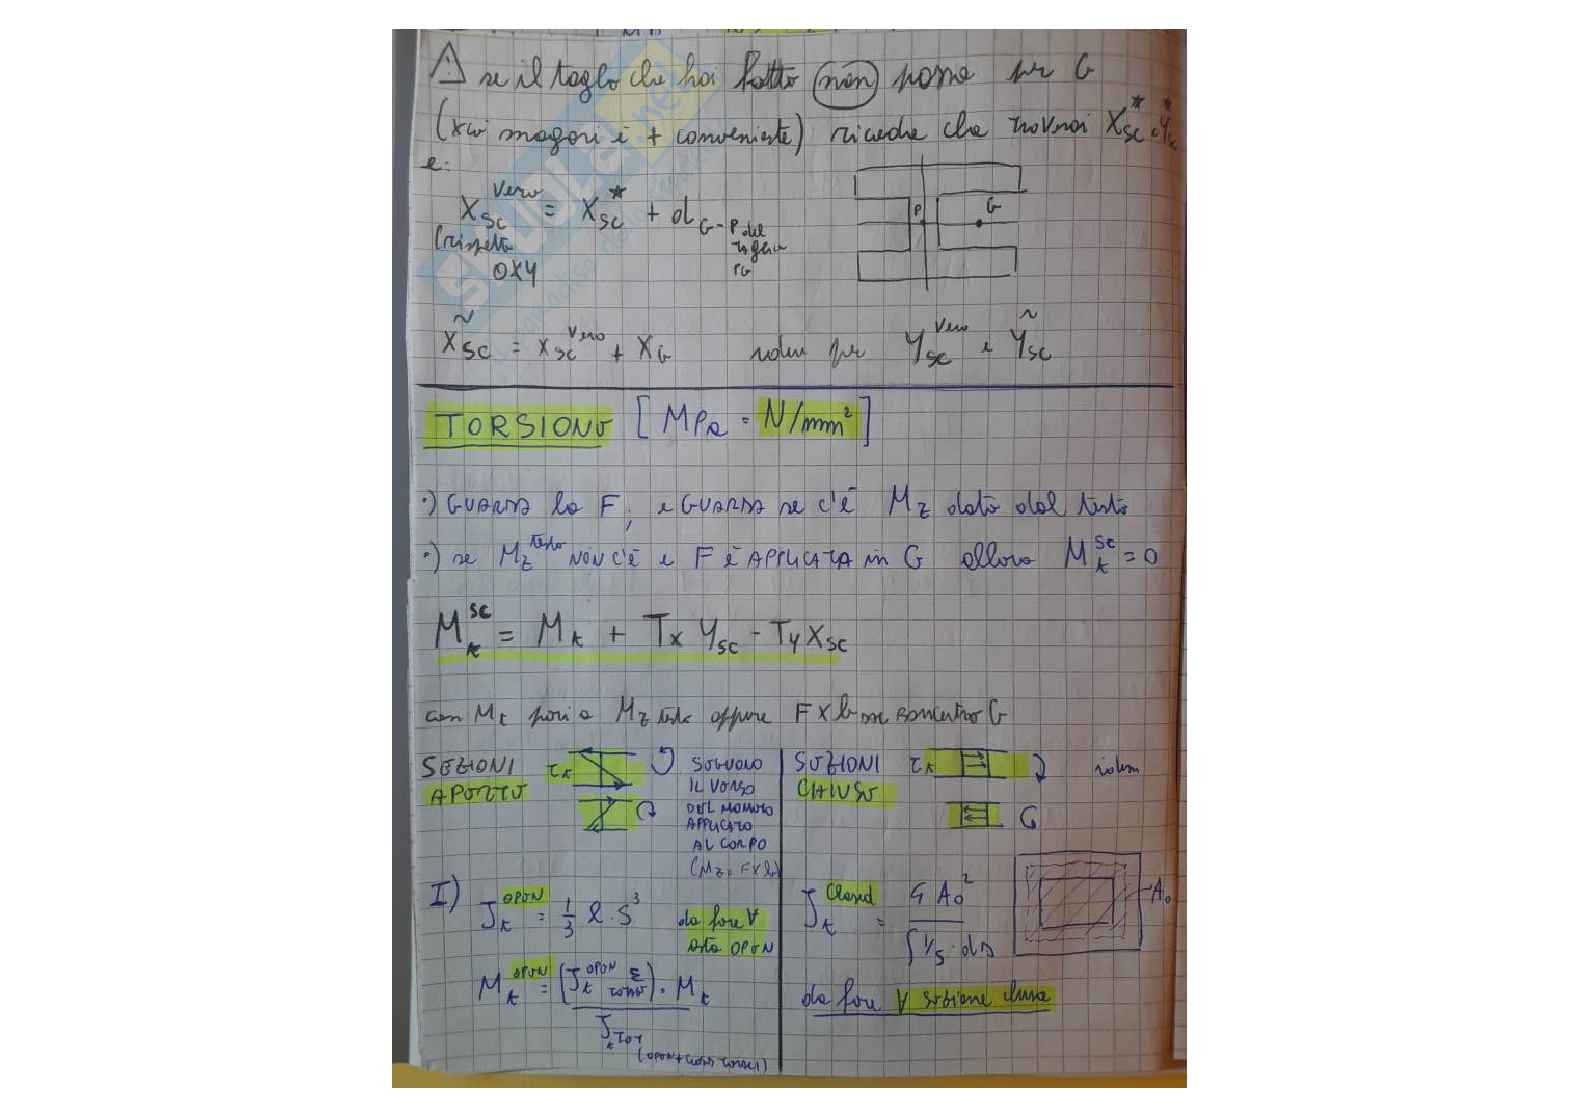 ⚠ se il taglio che hai fatto non passa per G
(xké magari è + conveniente) ricorda che troverai X*SC e Y*SC
e:
X SC vero = X SC * + d G-P del taglio
(rispetto
OXY
P G
X̃SC = X SC vero + XG idem per Y SC vero e ỸSC
TORSIONE [MPa = N/mm²]
·) GUARDA la F, e GUARDA se c'è Mz dato dal testo
·) se Mz testo NON C'È e F È APPLICATA in G allora Mt SC = 0
Mt SC = Mt + Tx YSC - Ty XSC
con Mt pari a Mz testo oppure F x b
SEZIONI APERTE τt
SEGUONO
IL VERSO
DEL MOMENTO
APPLICATO
AL CORPO
(Mz, F x b)
SEZIONI CHIUSE τt idem
I) Jt OPEN = 1/3 l · s³ da fare ∀ asta OPEN
Mt OPEN = (Jt OPEN Σ) · Mt
Jt TOT
Jt Closed = 4 A0² / ∫ 1/s · ds
A0
da fare ∀ sezione chiusa
SKUOLA.net